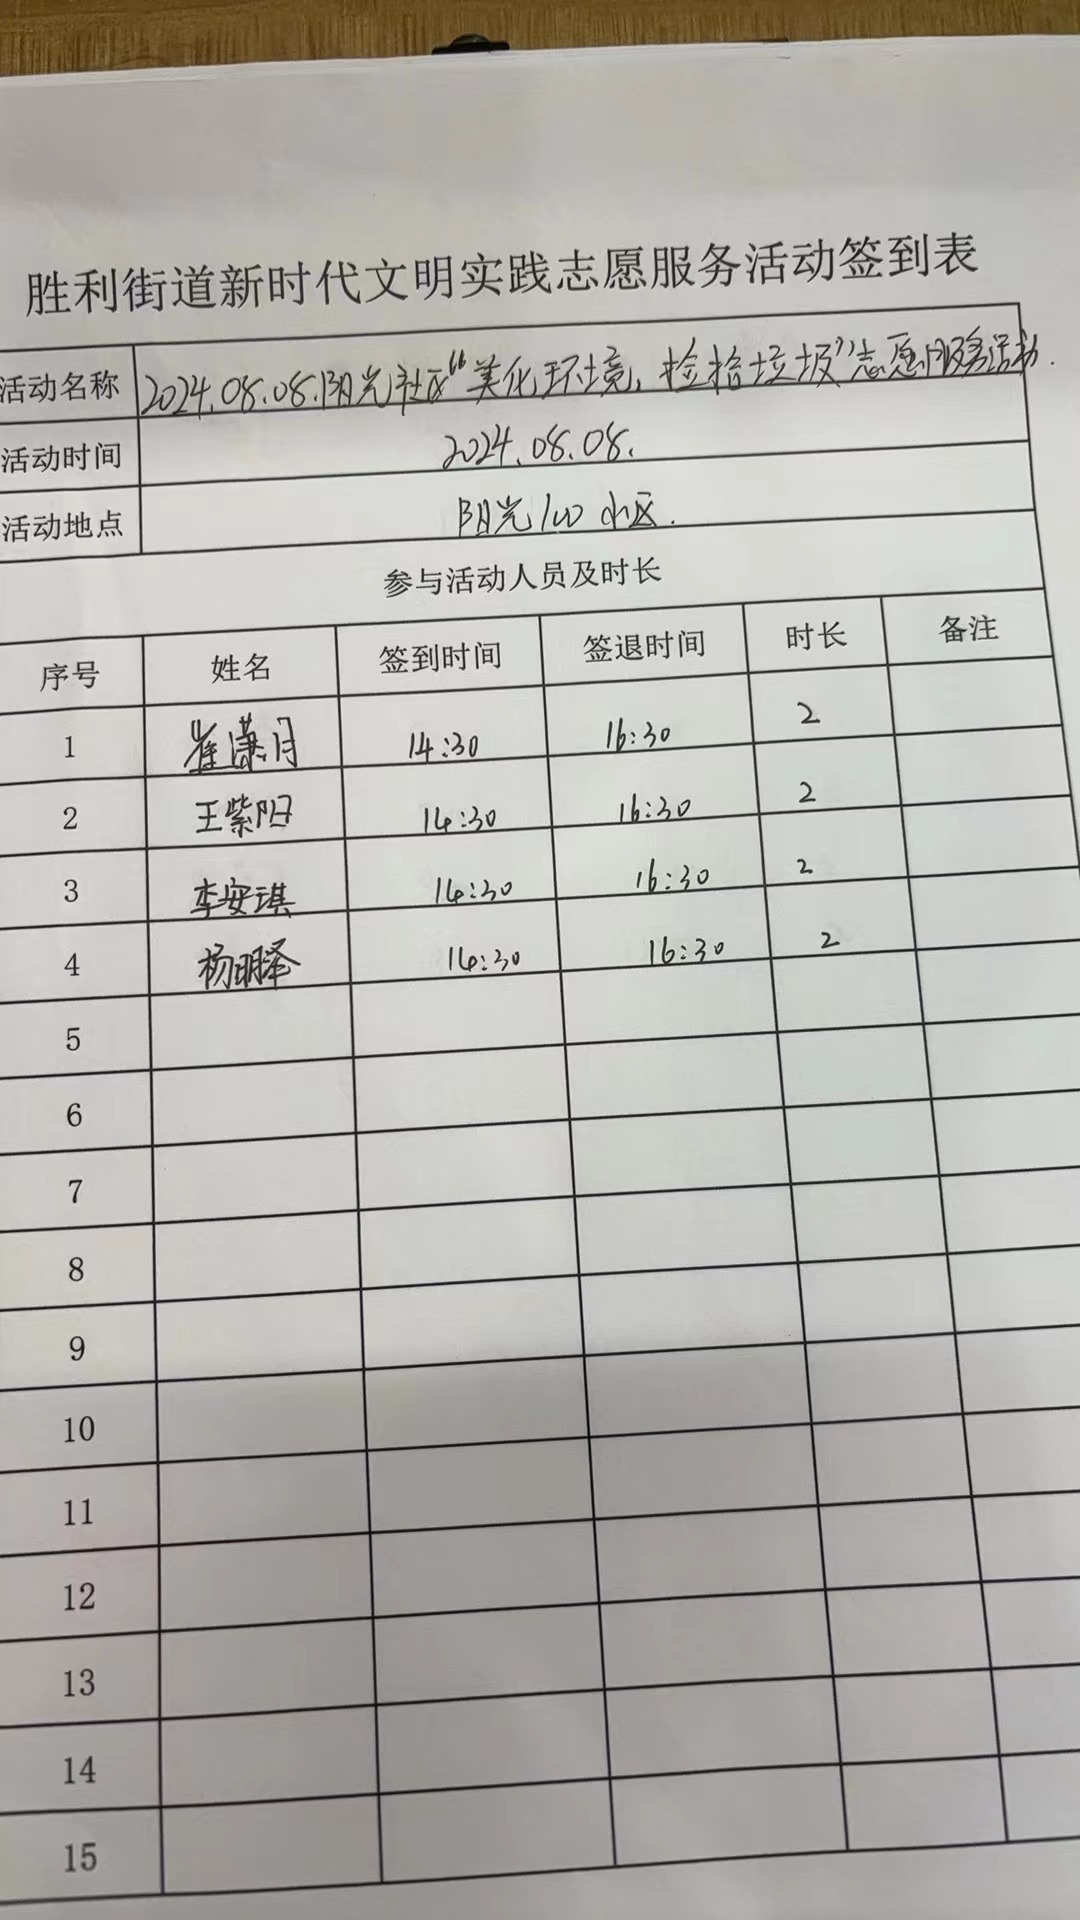 胜利街道新时代文明实践志愿服务活动签到表
活动名称 2024.08.08.阳光社区“美化环境，捡拾垃圾”志愿服务活动.
活动时间 2024.08.08.
活动地点 阳光100小区.
参与活动人员及时长
序号 姓名 签到时间 签退时间 时长 备注
1 崔潇月 14:30 16:30 2
2 王紫阳 14:30 16:30 2
3 李安琪 14:30 16:30 2
4 杨明泽 14:30 16:30 2
5
6
7
8
9
10
11
12
13
14
15